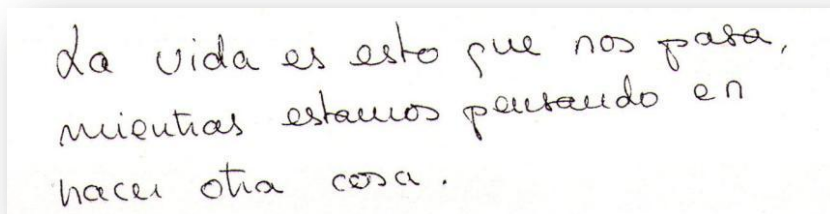 La vida es esto que nos pasa,
mientras estamos pensando en
hacer otra cosa.